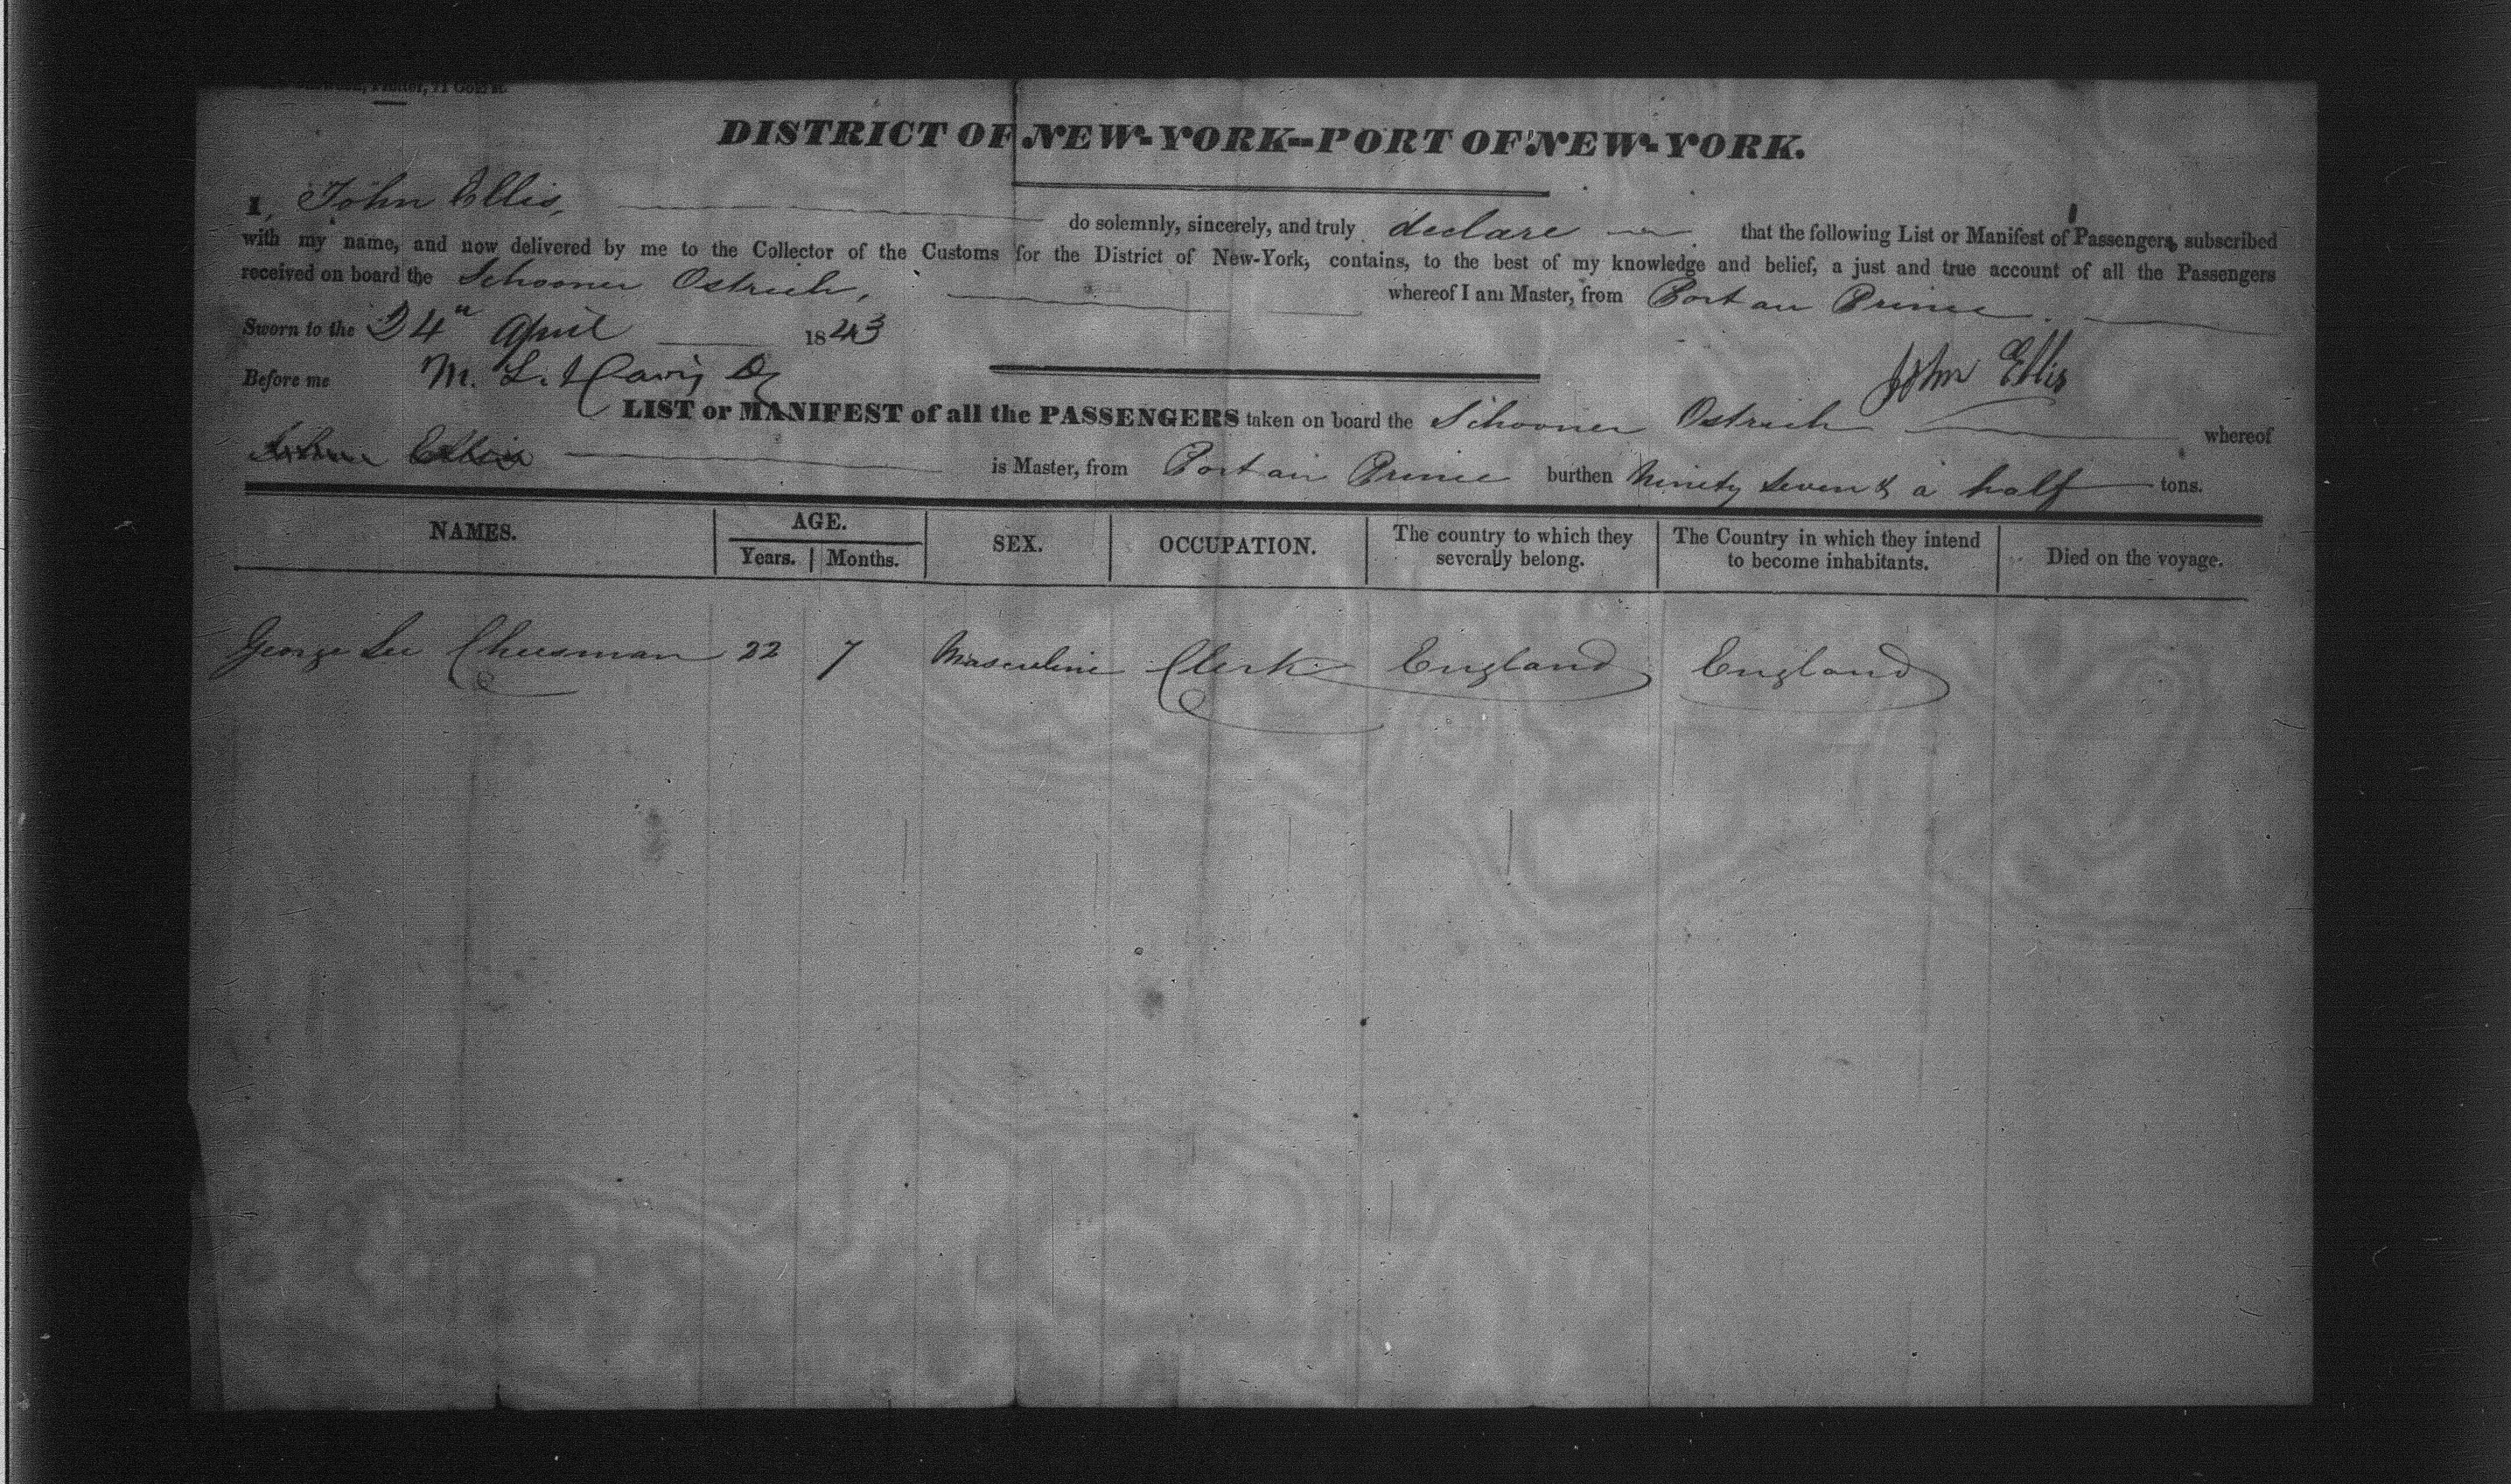 Printer, 71 Gold st.
DISTRICT OF NEW-YORK--PORT OF NEW-YORK.
I, John Ellis, do solemnly, sincerely, and truly declare that the following List or Manifest of Passengers, subscribed
with my name, and now delivered by me to the Collector of the Customs for the District of New-York, contains, to the best of my knowledge and belief, a just and true account of all the Passengers
received on board the Schooner Ostrich, whereof I am Master, from Port au Prince.
Sworn to the 24" April 1843
John Ellis
Before me M. L. Davis
LIST or MANIFEST of all the PASSENGERS taken on board the Schooner Ostrich whereof
John Ellis is Master, from Port au Prince burthen Ninety Seven & a half tons.
NAMES. AGE. SEX. OCCUPATION. The country to which they severally belong. The Country in which they intend to become inhabitants. Died on the voyage.
Years. Months.
George Lee Cheesman 22 7 Masculine Clerk England England